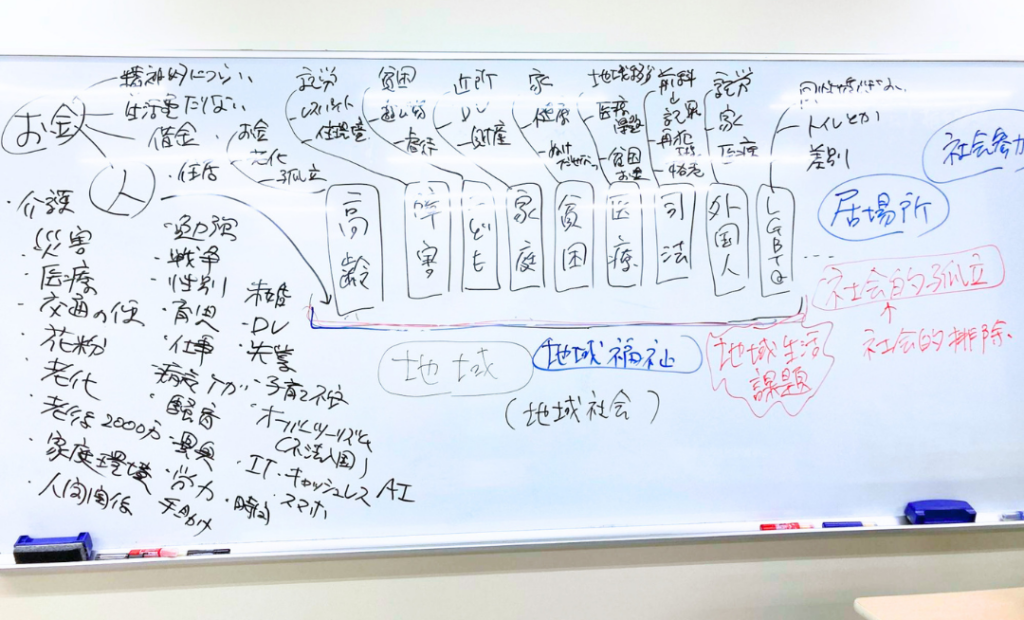 お金
精神的につらい
生活費たりない
借金
人
・お金
・老化
孤立
・住居
・介護
災害
・医療
・交通の便
・花粉
・老化
・老後2000万
・家庭環境
・人間関係
・勉強
・戦争
・性別
・育児
・仕事
・騒音
・労力
・時間
・未婚
・DV
・失業
・子育て不安
・オーバーツーリズム
(不法入国)
・IT・キャッシュレス AI
・スマホ
就労
住環境
貧困
虐待
近所
DV
家
健康
地域移行
医療
貧困
お金
前科
↓
再犯
就労
家
医療
トイレとか
差別
高齢
障害
子ども
家庭
貧困
医療
司法
外国人
LGBTQ
...
社会参加
居場所
社会的孤立
↑
社会的排除
地域
地域福祉
地域生活
課題
(地域社会)